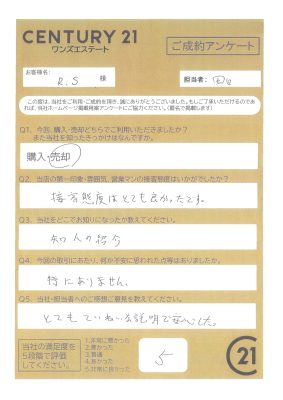 CENTURY 21
ワンズエステート
ご成約アンケート
お客様名:
R.S 様
担当者:
この度は、当社をご利用・ご成約を頂き、誠にありがとうございました。もしご了承いただけるのであ
れば、当社ホームページ掲載用簡単アンケートにご協力ください。(匿名で掲載します)
Q1、今回、購入・売却どちらでご利用いただきましたか?
また当社を知ったきっかけはなんですか。
購入・売却
Q2、当店の第一印象・雰囲気、営業マンの接客態度はいかがでしたか?
接客態度はとても良かったです。
Q3、当社をどこでお知りになったか教えてください。
知人の紹介
Q4、今回の取引にあたり、何か不安に思われた点等はありましたか。
特にありません。
Q5、当社・担当者へのご感想ご意見を教えてください。
とてもていねいな説明で安心した。
当社の満足度を
5段階で評価
してください。
1.非常に悪かった
2.悪かった
3.普通
4.良かった
5.非常に良かった
5
C21